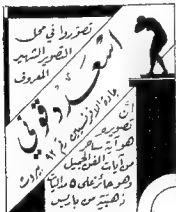 تصوّروا في محل
التصوير الشهير
المعروف
اسعد دقوني
جادة الافرنسيين رقم ٩٢ بيروت
ان
تصويره
هو آية سحر
من آيات الفن الجميل
وهو حائز على ٥ مداليات
ذهبية من باريس